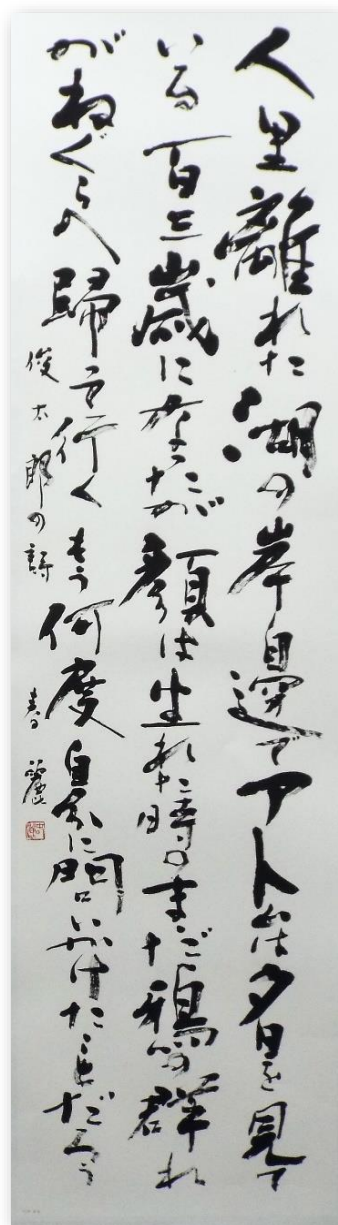 人里離れた湖の岸邊でアトムは夕日を見て
いる百三歳になったが顔は生れた時のままだ鴉の群れ
がねぐらへ歸って行くもう何度自分に問いかけたことだろう
俊太郎の詩 春麗